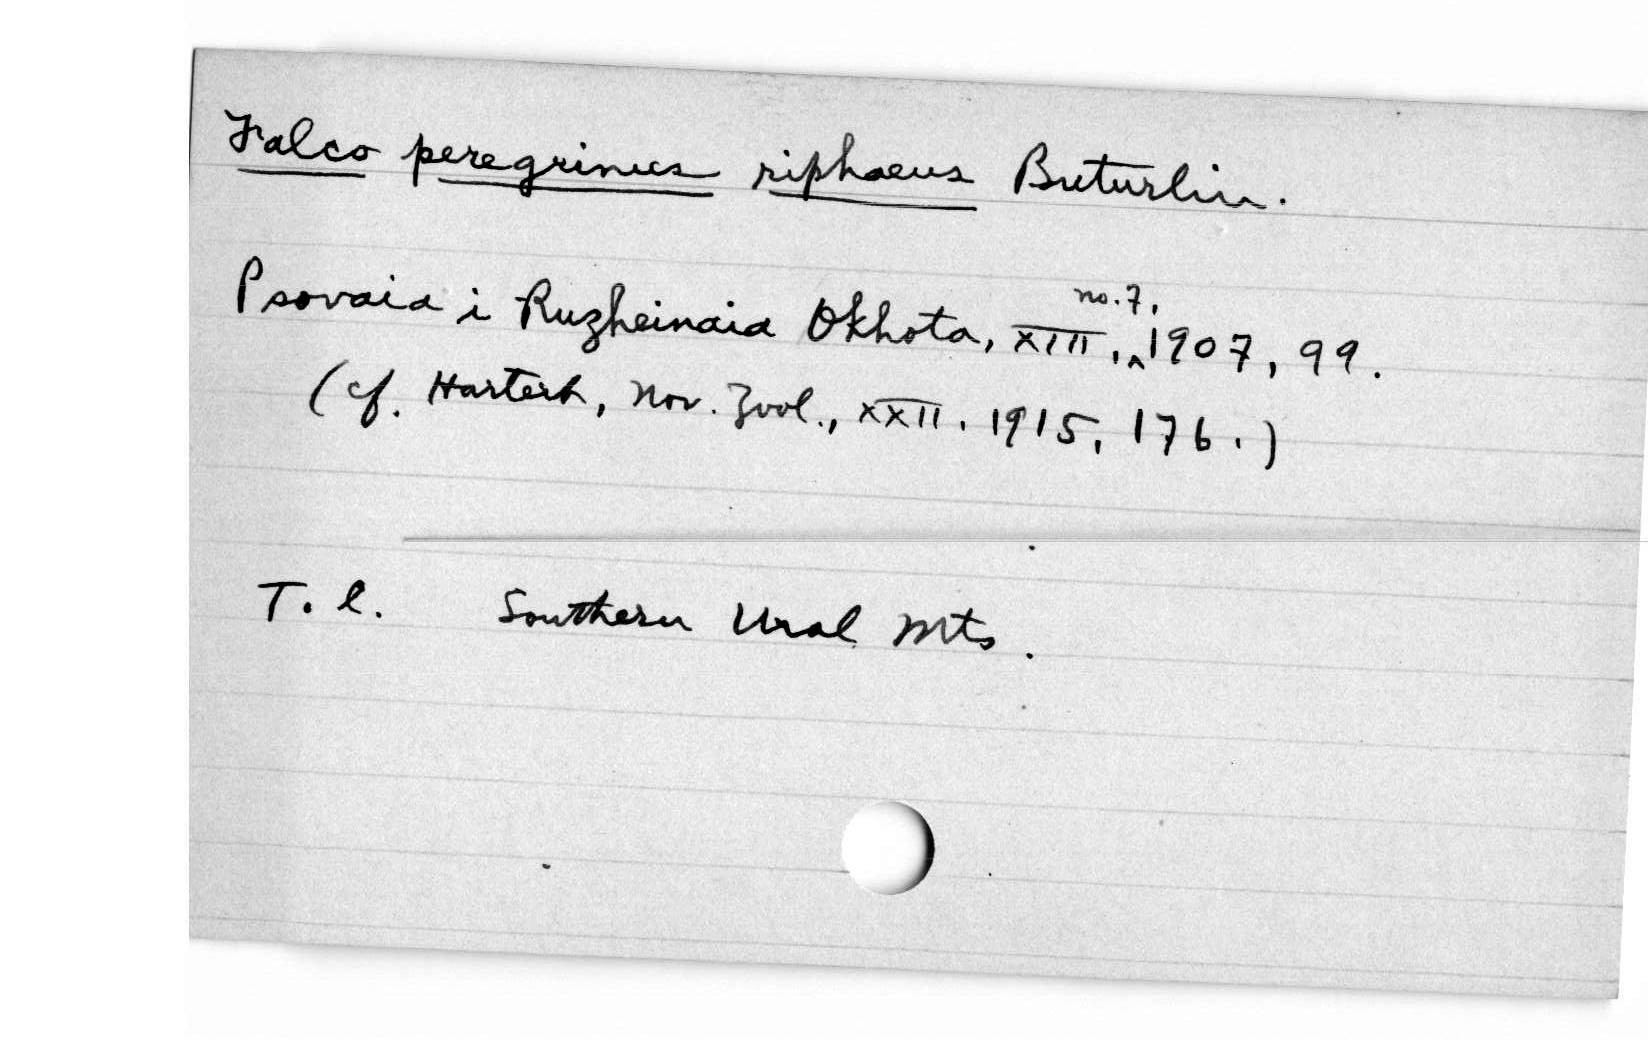 Falco peregrinus riphaeus Buturlin.
Psovaia i Ruzheinaia Okhota, XIII, no. 7, 1907, 99.
(cf. Hartert, Nov. Zool., XXII, 1915, 176.)
T. l. Southern Ural Mts.